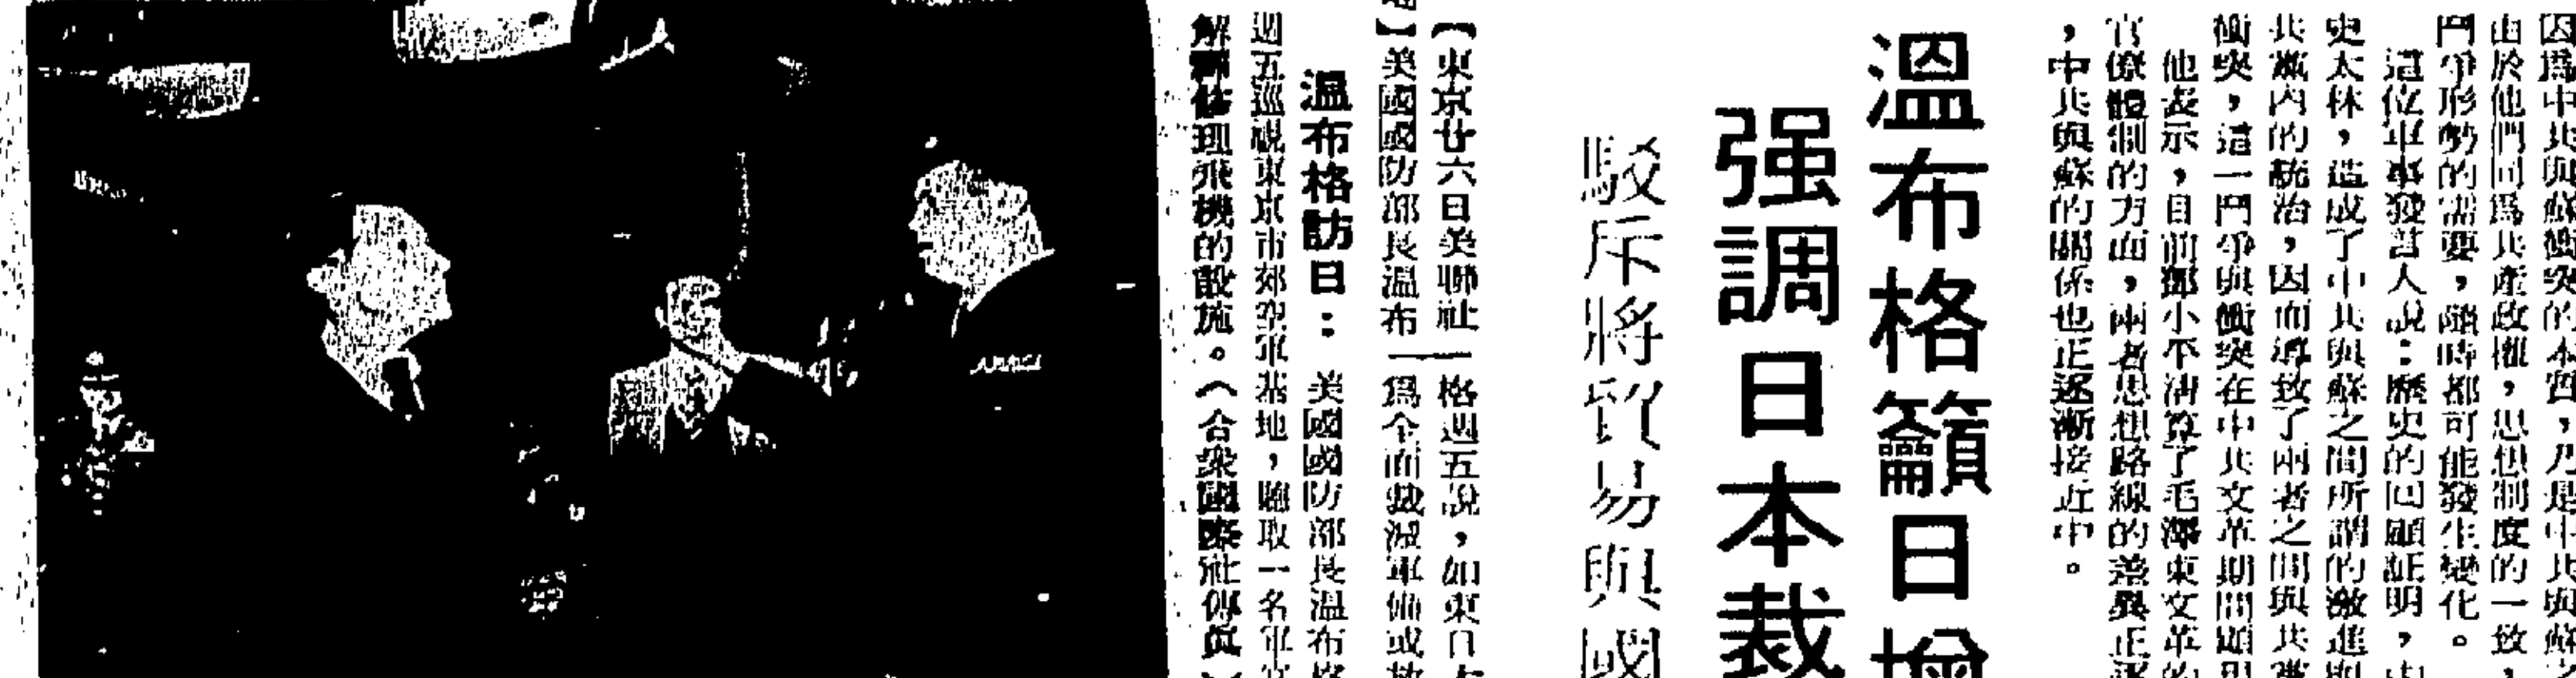 因爲中共與蘇衝突的本質，乃是中共與蘇
由於他們同爲共產政權，思想制度的一致，
鬥爭形勢的需要，隨時都可能發生變化。
這位軍事發言人說：歷史的回顧証明，由
史太林，造成了中共與蘇之間所謂的激進
共黨內的統治，因而導致了兩者之間與共黨
衝突，這一鬥爭與衝突在中共文革期間
他表示，目前鄧小平清算了毛澤東文革的
官僚體制的方面，兩者思想路線的差異正逐
，中共與蘇的關係也正逐漸接近中。
溫布格籲日增
强調日本裁
駁斥將貿易與國
【東京廿六日美聯社—格週五說，如東日本
】美國國防部長溫布—爲全面裁減軍備或放
溫布格訪日：美國國防部長溫布格
週五巡視東京市郊空軍基地，聽取一名軍官
解釋修理飛機的設施。（合衆國際社傳眞）